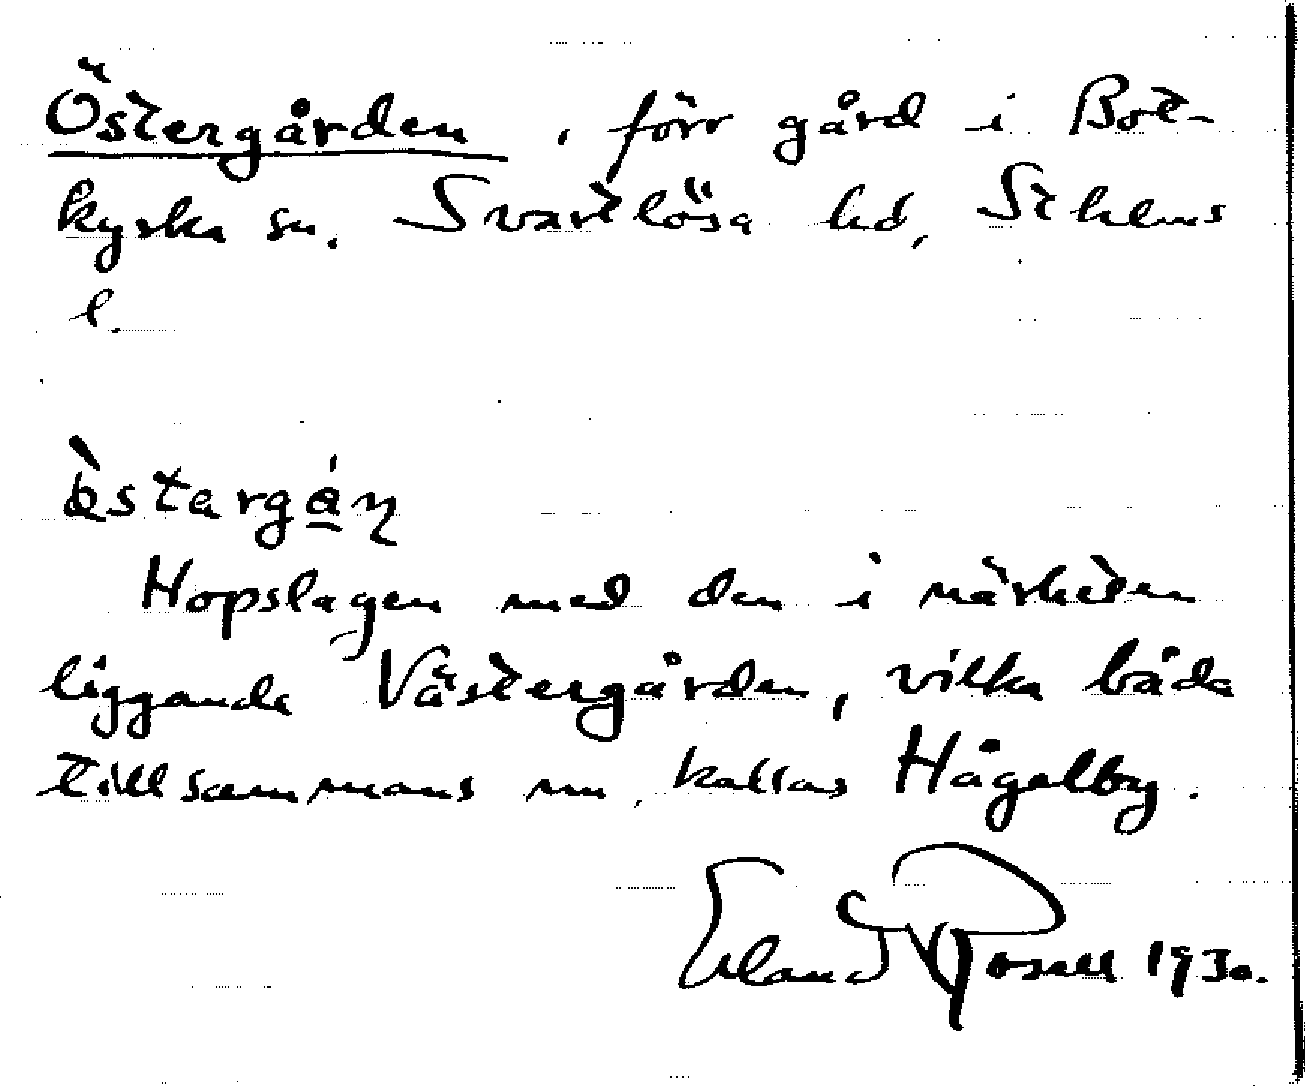 Östergården, förr gård i Bot-
kyrka sn. Svartlösa hd, Sthlms
l.
Hopslagen med den i närheten
liggande Västergården, vilka båda
tillsammans nu kallas Hågelby.
Erland Rosell 1930.